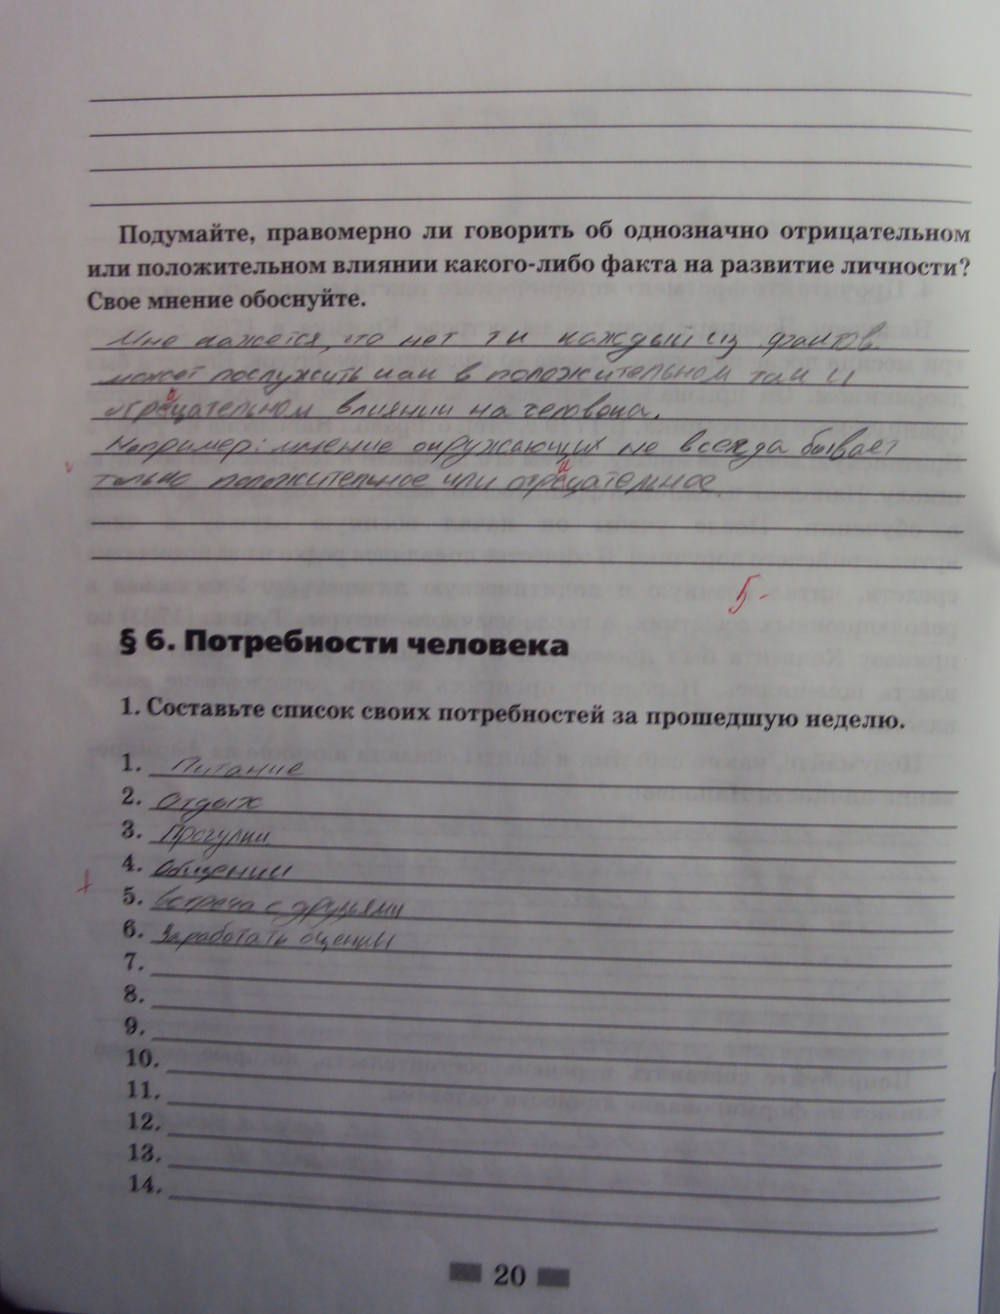 Подумайте, правомерно ли говорить об однозначно отрицательном
или положительном влиянии какого-либо факта на развитие личности?
Свое мнение обоснуйте.
Мне кажется, что нет каждый из фактов
может послужить как в положительном так и
отрецательном влиянии на человека.
Например: мнение окружающих не всегда бывает
только положительное или отрецательное
5-
§ 6. Потребности человека
1. Составьте список своих потребностей за прошедшую неделю.
1. Питание
2. Отдых
3. Прогулки
4. Общении
+
5. Встреча с друзьями
6. Заработать оценки
7.
8.
9.
10.
11.
12.
13.
14.
20